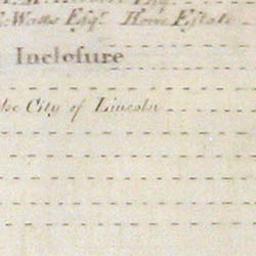 Watts Esqr. Home Estate
Inclosure
the City of Lincoln